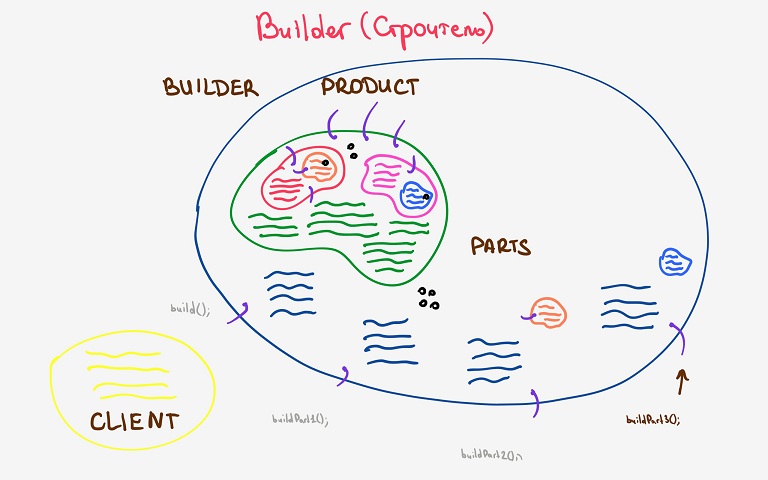 Builder (Строитель)
BUILDER PRODUCT
PARTS
build();
CLIENT
buildPart1();
buildPart3();
buildPart2();